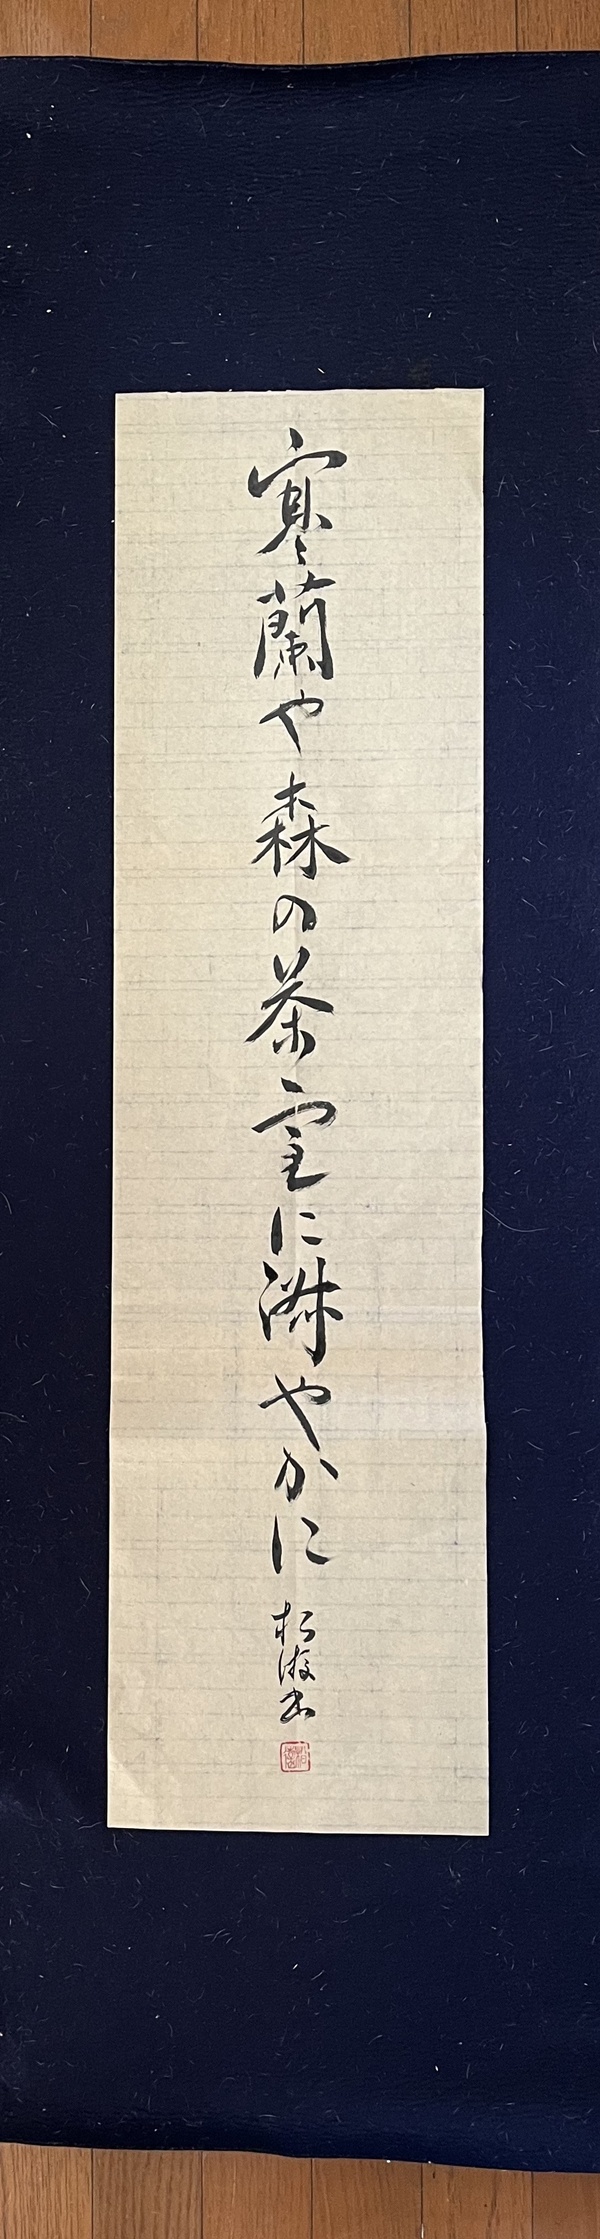 寒蘭や森の茶室に淋やかに
松波書